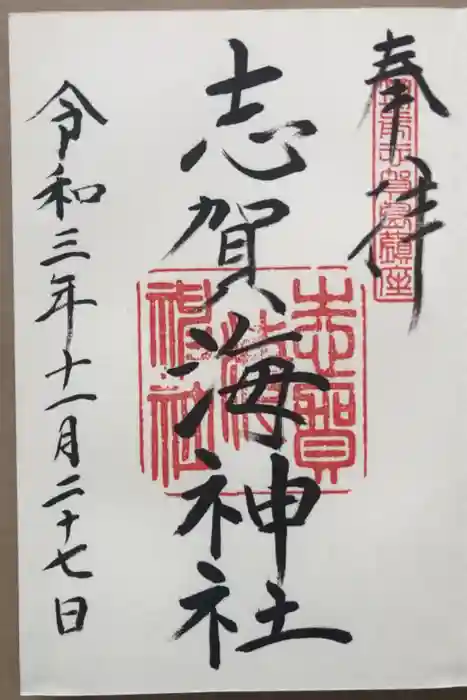 奉拝
志賀海神社
志賀
海
神社
令和三年十一月二十七日